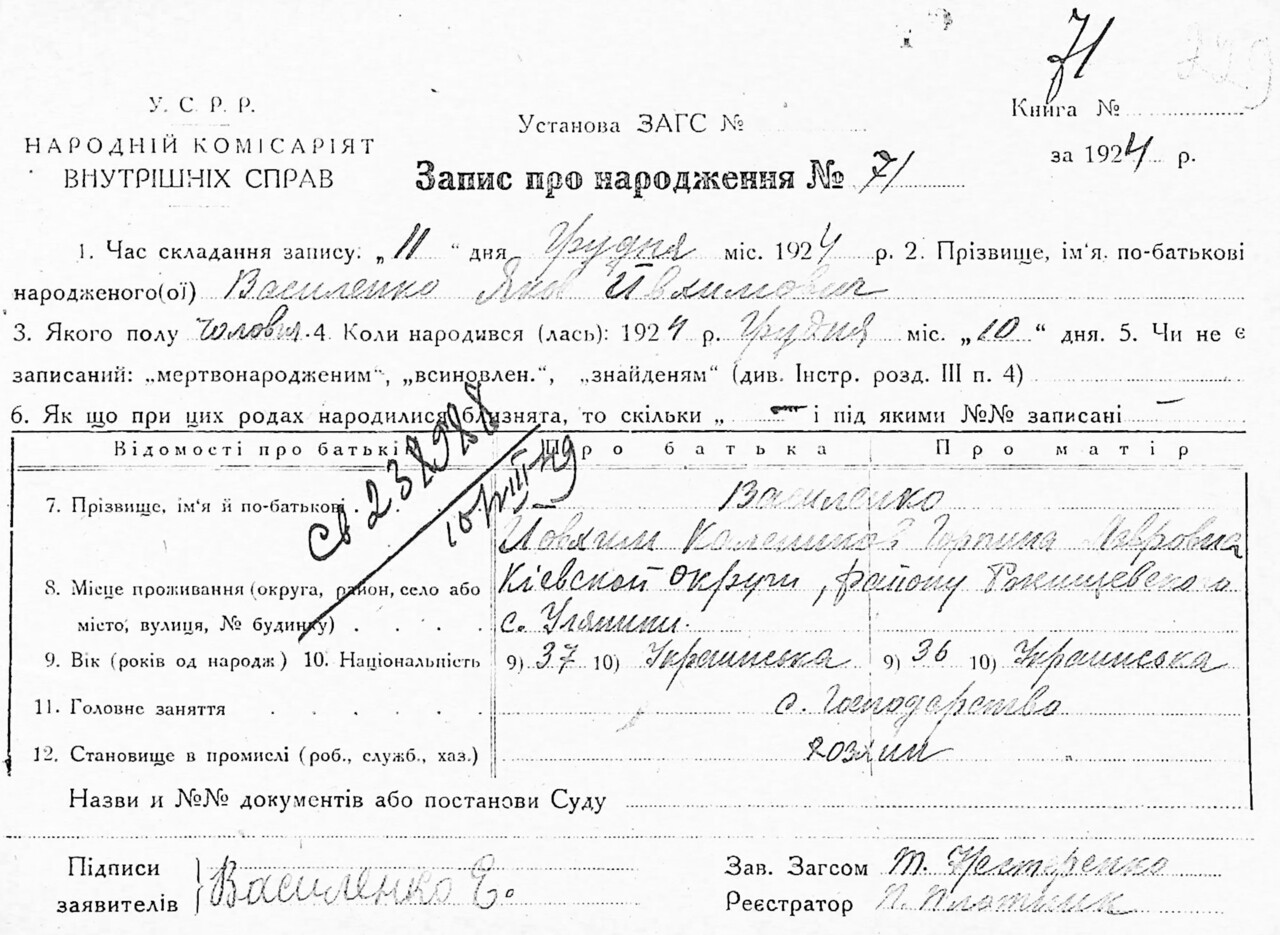 71
229
У. С. Р. Р.
НАРОДНІЙ КОМІСАРІЯТ
ВНУТРІШНІХ СПРАВ
Установа ЗАГС №
Книга №
за 1924 р.
Запис про народження № 71
1. Час складання запису: „11“ дня Грудня міс. 1924 р. 2. Прізвище, ім'я, по-батькові
народженого(ої) Василенко Яков Йвхимович
3. Якого полу чоловіч. 4. Коли народився (лась): 1924 р. Грудня міс. „10“ дня. 5. Чи не є
записаний: „мертвонародженим“, „всиновлен.“, „знайденям“ (див. Інстр. розд. III п. 4)
6. Як що при цих родах народилися близнята, то скільки „ — і під якими №№ записані —
Відомості про батьків Про батька Про матір
св 232988
10/VIII 49
7. Прізвище, ім'я й по-батькові Василенко
Йовхим Горпина Лавровна
8. Місце проживання (округа, район, село або Кіевской округи, району
місто, вулиця, № будинку) с. Уляники
9. Вік (років од народж) 10. Національність 9) 37 10) Украинська 9) 36 10) Украинська
11. Головне заняття с. Господарство
12. Становище в промислі (роб., служб., хаз.) хозяин
Назви и №№ документів або постанови Суду
Підписи
заявителів Василенко Е.
Зав. Загсом Т. Нестеренко
Реєстратор П. Плотник